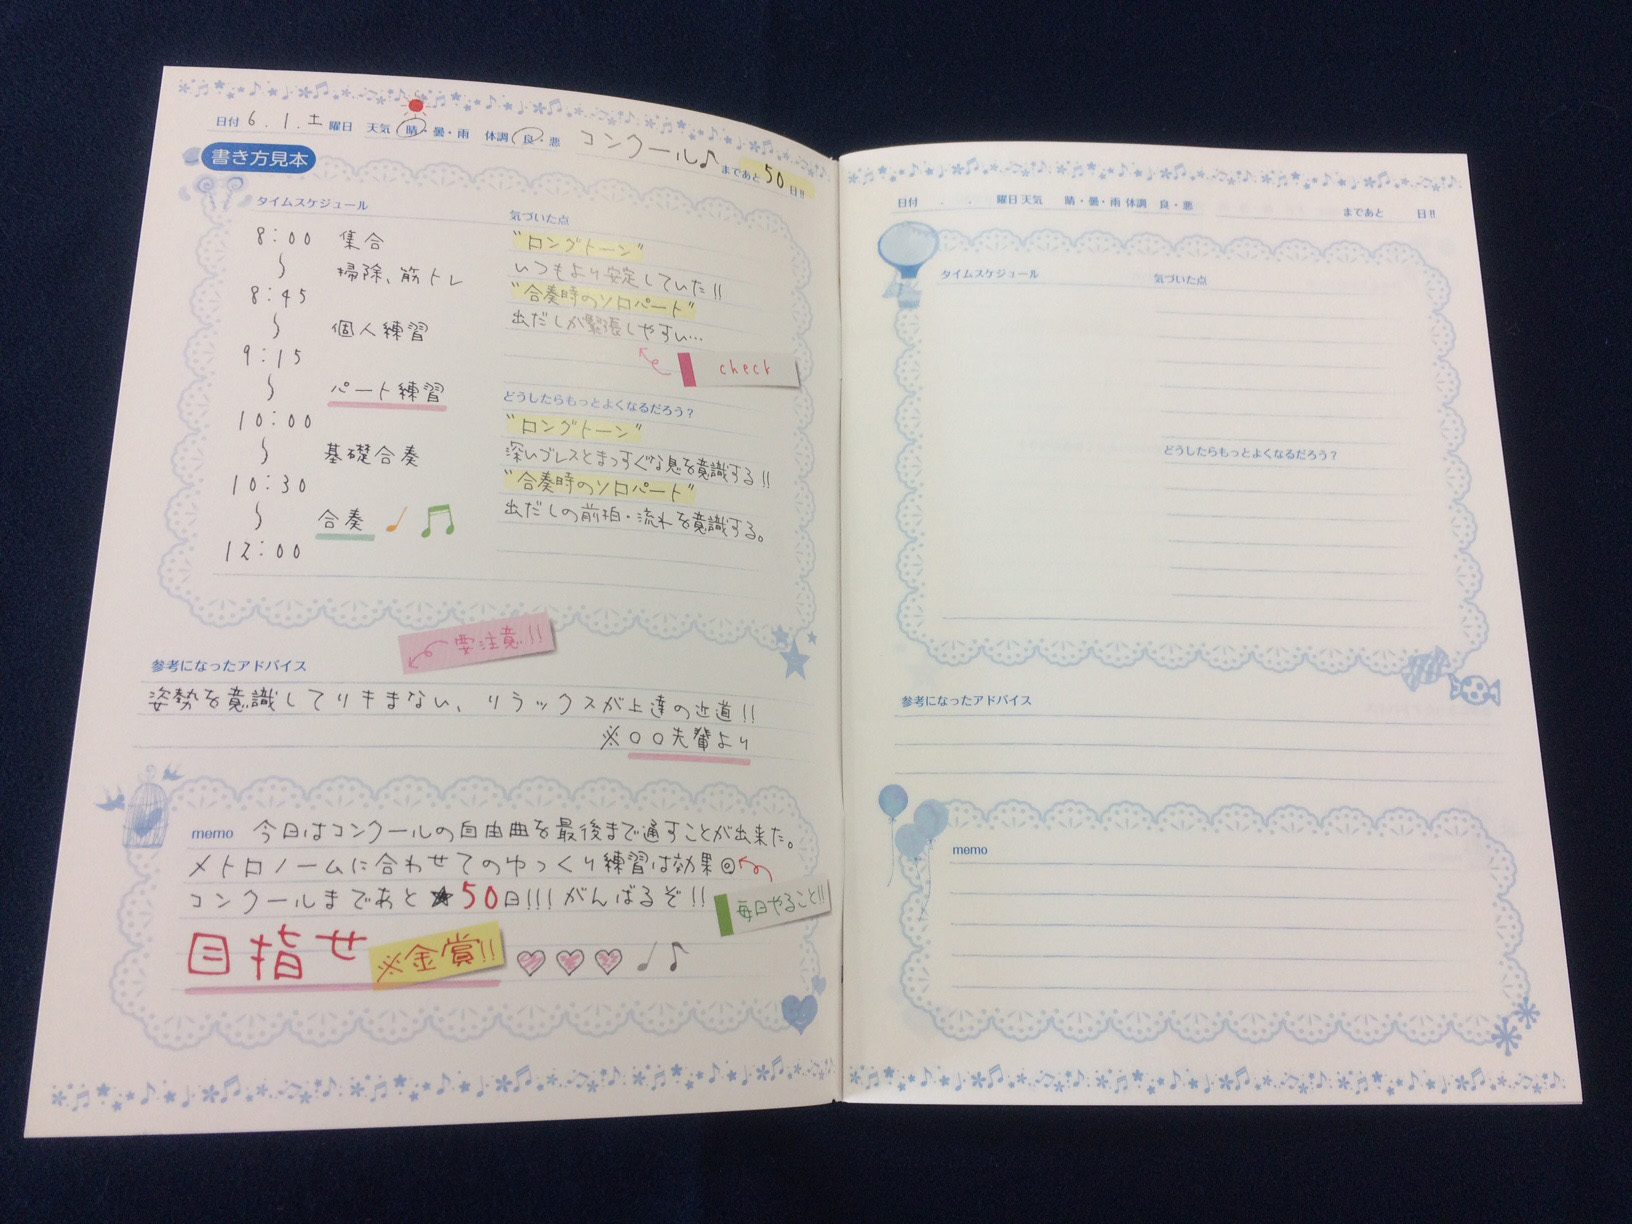 日付 6.1.土 曜日 天気 晴・曇・雨 体調 良・悪 コンクール♪ まであと 50 日!!
書き方見本
タイムスケジュール
8:00 集合
〜 掃除、筋トレ
8:45
〜 個人練習
9:15
〜 パート練習
10:00
〜 基礎合奏
10:30
〜 合奏
12:00
気づいた点
"ロングトーン"
いつもより安定していた!!
"合奏時のソロパート"
出だしが緊張しやすい…
check
どうしたらもっとよくなるだろう?
"ロングトーン"
深いブレスとまっすぐな息を意識する!!
"合奏時のソロパート"
出だしの前拍・流れを意識する。
要注意!!
参考になったアドバイス
姿勢を意識してリキまない、リラックスが上達の近道!!
※○○先輩より
memo 今日はコンクールの自由曲を最後まで通すことが出来た。
メトロノームに合わせてのゆっくり練習は効果◎
コンクールまであと★50日!!! がんばるぞ!!
毎日やること!!
目指せ ※金賞!!
日付 . . 曜日 天気 晴・曇・雨 体調 良・悪 まであと 日!!
タイムスケジュール
気づいた点
どうしたらもっとよくなるだろう?
参考になったアドバイス
memo